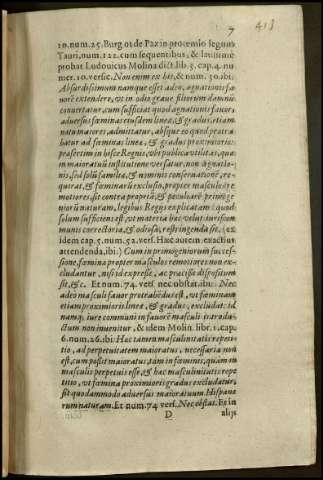 7 413
10.num.25. Burgos de Paz in proemio legum
Tauri, num. 122. cum sequentibus, & latissimè
probat Ludouicus Molina dict. lib. 3. cap. 4. nu
mer. 10. versic. Non enim ex hac, & num. 30. ibi:
Absurdissimum namque esset adeo, agnationis fa
uorē extendere, vt in odio graue filiorum damnū
conuertatur, cum sufficiat quod agnationis fauor,
aduersus fœminas eiusdem lineæ, & gradus, etiam
natu maiores, admittatur, absque eo quod protra
hatur ad fœminas lineæ, & gradus proximioris:
præsertim in hisce Regnis, vbi publica vtilitas, quæ
in maioratuū institutione versatur, non agnatio-
nis, sed solū familiæ, & nominis conseruationē, re-
quirat, & fœminarū exclusio, propter masculos re
motiores, sit contra propriā, & peculiarē primoge
niorū naturam, legibus Regijs explicatam: quod
solum sufficiens est, vt materia hæc velut iuris com
munis correctoria, & odrosa, restringenda sit. (et
idem cap. 5. num. 52. vers. Hæc autem exactius
attendenda, ibi:) Cum in primogeniorum succes-
sione, fœmina propter masculos remotiores non ex-
cludantur, nisi id expresse, ac præcise dispositum
sit, &c. Et num. 74. vers. nec obstat ibi: Nec
adeo masculi fauor protrahēdus est, vt fœminam
etiam proximioris lineæ, & gradus, excludat: id
namq; iure communi in fauorē masculi introdu-
ctum non inuenitur, & idem Molin. libr. 1. cap.
6. num. 26. ibi: Hæc tamen masculinitatis repeti-
tio, ad perpetuitatem maioratus, necessaria non
est, cum possit maioratus, tam in fœminis, quàm in
masculis perpetuus esse, & hæc masculinitatis repe
titio, vt fœmina proximioris gradus excludatur,
sit quodammodo aduersus maioratuum Hispano
rum naturam. Et num. 74 vers. Nec obstat. Et in
D alijs